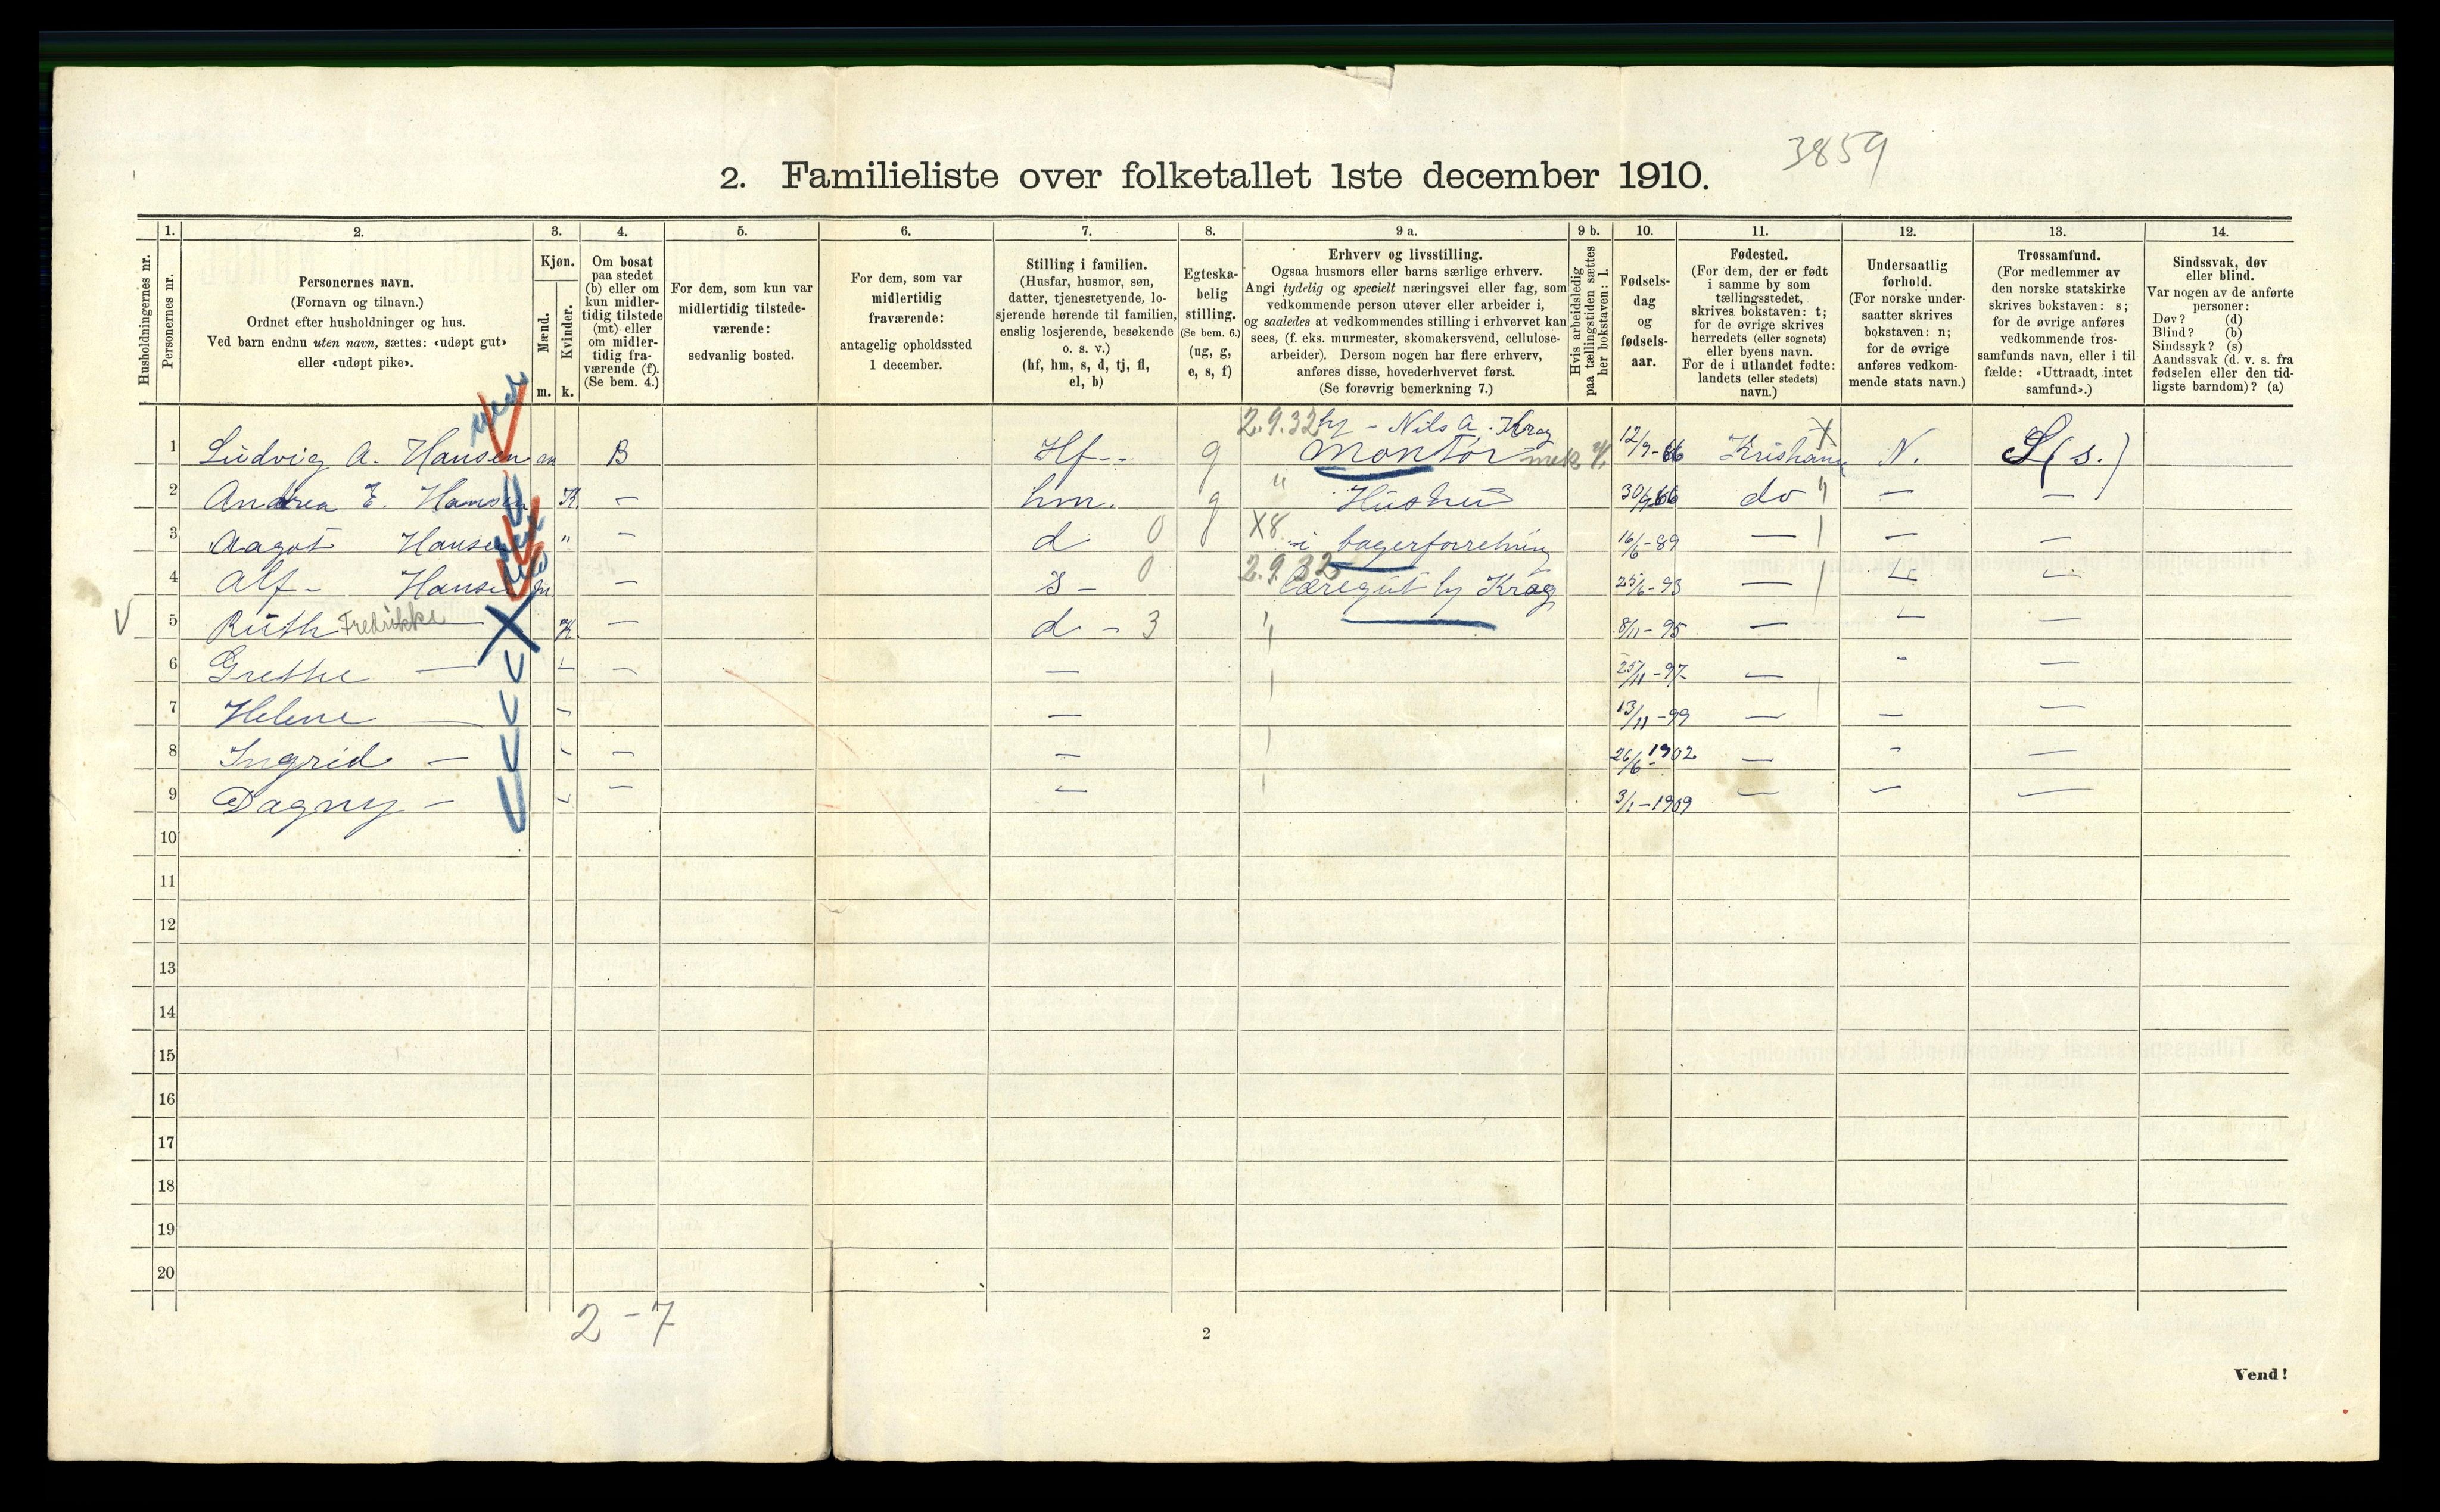 3859
2. Familieliste over folketallet 1ste december 1910.
1. 2. 3. 4. 5. 6. 7. 8. 9 a. 9 b. 10. 11. 12. 13. 14.
Husholdningernes nr.
Personernes nr.
Personernes navn.
(Fornavn og tilnavn.)
Ordnet efter husholdninger og hus.
Ved barn endnu uten navn, sættes: «udøpt gut»
eller «udøpt pike».
Kjøn.
Mænd.
m.
Kvinder.
k.
Om bosat
paa stedet
(b) eller om
kun midler-
tidig tilstede
(mt) eller
om midler-
tidig fra-
værende (f).
(Se bem. 4.)
For dem, som kun var
midlertidig tilstede-
værende:
sedvanlig bosted.
For dem, som var
midlertidig
fraværende:
antagelig opholdssted
1 december.
Stilling i familien.
(Husfar, husmor, søn,
datter, tjenestetyende, lo-
sjerende hørende til familien,
enslig losjerende, besøkende
o. s. v.)
(hf, hm, s, d, tj, fl,
el, b)
Egteska-
belig
stilling.
(Se bem. 6.)
(ug, g,
e, s, f)
Erhverv og livsstilling.
Ogsaa husmors eller barns særlige erhverv.
Angi tydelig og specielt næringsvei eller fag, som
vedkommende person utøver eller arbeider i,
og saaledes at vedkommendes stilling i erhvervet kan
sees, (f. eks. murmester, skomakersvend, cellulose-
arbeider). Dersom nogen har flere erhverv,
anføres disse, hovederhvervet først.
(Se forøvrig bemerkning 7.)
Hvis arbeidsledig
paa tællingstiden sættes
her bokstaven: l.
Fødsels-
dag
og
fødsels-
aar.
Fødested.
(For dem, der er født
i samme by som
tællingsstedet,
skrives bokstaven: t;
for de øvrige skrives
herredets (eller sognets)
eller byens navn.
For de i utlandet fødte:
landets (eller stedets)
navn.)
Undersaatlig
forhold.
(For norske under-
saatter skrives
bokstaven: n;
for de øvrige
anføres vedkom-
mende stats navn.)
Trossamfund.
(For medlemmer av
den norske statskirke
skrives bokstaven: s;
for de øvrige anføres
vedkommende tros-
samfunds navn, eller i til-
fælde: «Uttraadt, intet
samfund».)
Sindssvak, døv
eller blind.
Var nogen av de anførte
personer:
Døv? (d)
Blind? (b)
Sindssyk? (s)
Aandssvak (d. v. s. fra
fødselen eller den tid-
ligste barndom)? (a)
2.9.32 hj - Nils A. Krag
1 Ludvig A. Hansen m B Hf-- g Montør mek 12/9-66 N. S (s.)
2 Andrea E. Hansen K. — hm. g " Hustru do " — —
3 Aagot Hansen " — d 0 X8 i bagerforretning 16/6-89 — — —
4 Alf - Hansen m — s - 0 2.9.32 Læregut hj Krag 25/6-93 — — —
5 Ruth Fredrikke — K. — d - 3 8/11-95 — — —
6 Grethe — — — — 25/11-97 — - —
7 Helene — - — 13/11-99 — — —
8 Ingrid — - — — 26/6-1902 — - —
9 Dagny - - — — 3/1-1909 — — —
10
11
12
13
14
15
16
17
18
19
20
2-7
2
Vend!